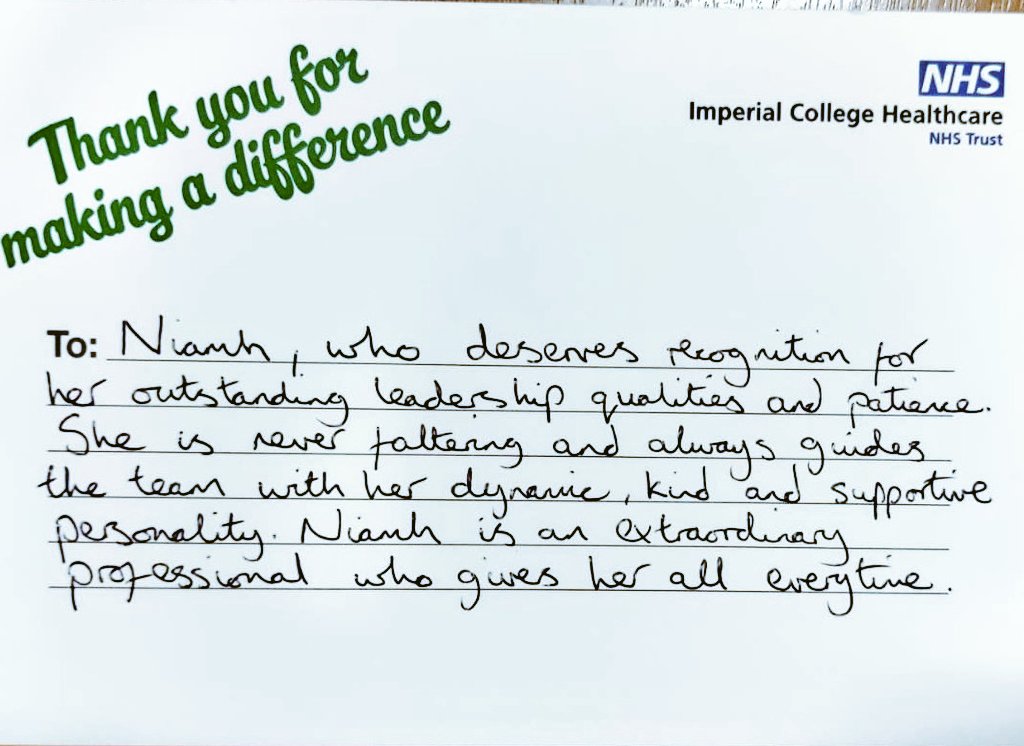 Thank you for
making a difference
NHS
Imperial College Healthcare
NHS Trust
To: Niamh, who deserves recognition for
her outstanding leadership qualities and patience.
She is never faltering and always guides
the team with her dynamic, kind and supportive
personality. Niamh is an extraordinary
professional who gives her all everytime.